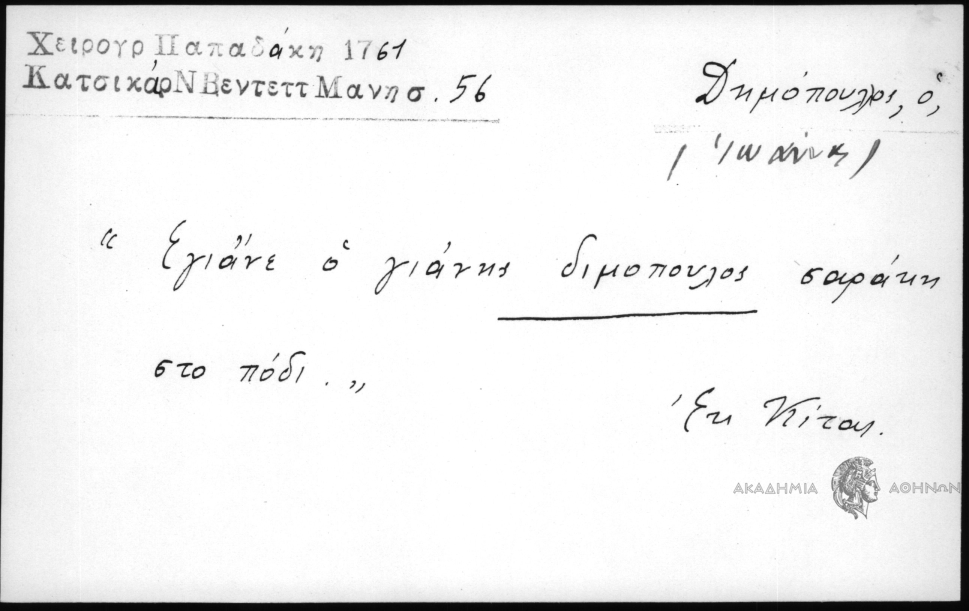 Χειρουρ Παπαδάκη 1761
Κατσικάρ Ν Βεντεττ Μανησ. 56
Δημόπουλος, ὁ,
(Ἰωάννης)
“ Εγιάνε ὁ γιάνης διμοπουλος σαράκη
στο πόδι. „
Ἐκ Κίτας.
ΑΚΑΔΗΜΙΑ ΑΘΗΝΩΝ